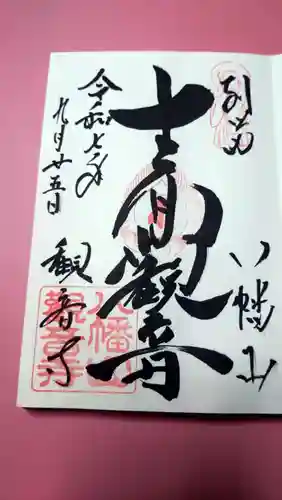 別当
八幡山
十一面觀音
令和七年
九月廿五日
觀音寺
八幡山
觀音寺